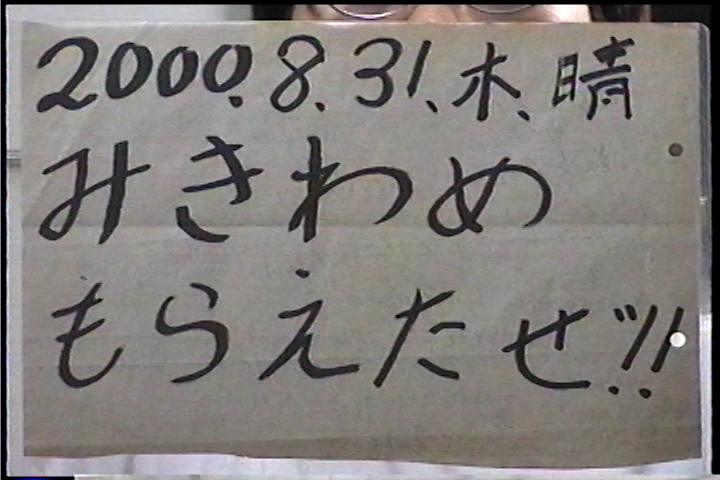 2000.8.31、木、晴
みきわめ
もらえたぜ!!